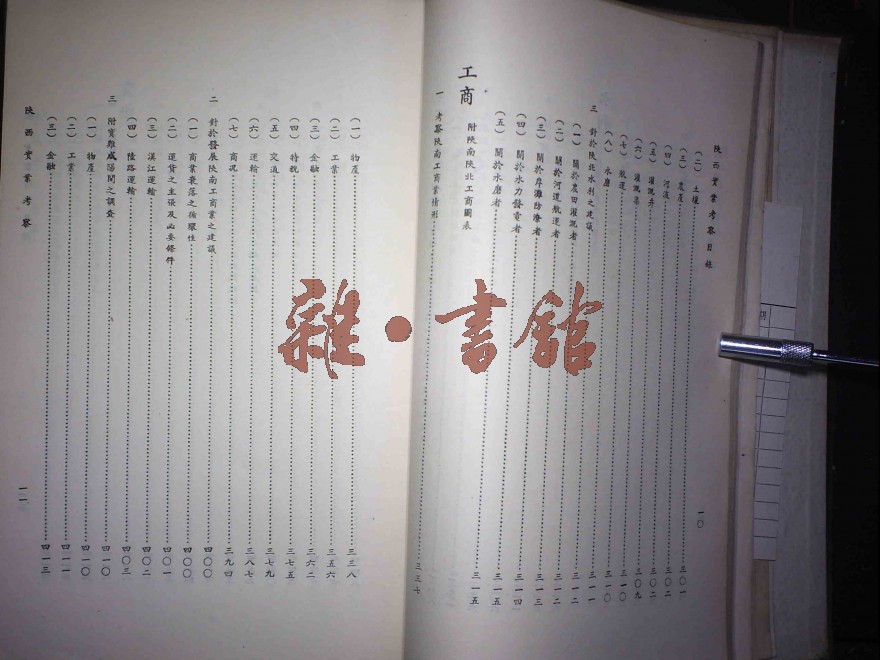 陝西實業考察目錄
(二) 土壤 三〇一
(三) 農產 三〇一
(四) 河流 三〇二
(五) 灌溉井 三〇二
(六) 灌溉渠 三〇九
(七) 航運 三一〇
(八) 水磨 三一〇
三 對於陝北水利之建議 三一一
(一) 關於農田灌溉者 三一二
(二) 關於河道航運者 三一二
(三) 關於岸灘防療者 三一三
(四) 關於水力發電者 三一四
(五) 關於水磨者 三一五
工商 附陝南陝北工商圖表 三一五
一 考察陝南工商業情形 三三七
一〇
(一) 物產 三三八
(二) 工業 三五六
(三) 金融 三六二
(四) 特稅 三七五
(五) 交通 三七九
(六) 運輸 三八七
(七) 商況 三九四
二 對於發展陝南工商業之建議 四〇〇
(一) 商業衰落之循環性 四〇〇
(二) 運貨之主張及必要條件 四〇一
(三) 漢江運輸 四〇二
(四) 陸路運輸 四〇三
三 附寶雞咸陽間之調查 四一〇
(一) 物產 四一〇
(二) 工業 四一一
(三) 金融 四一三
陝西實業考察
一一
雜·書館